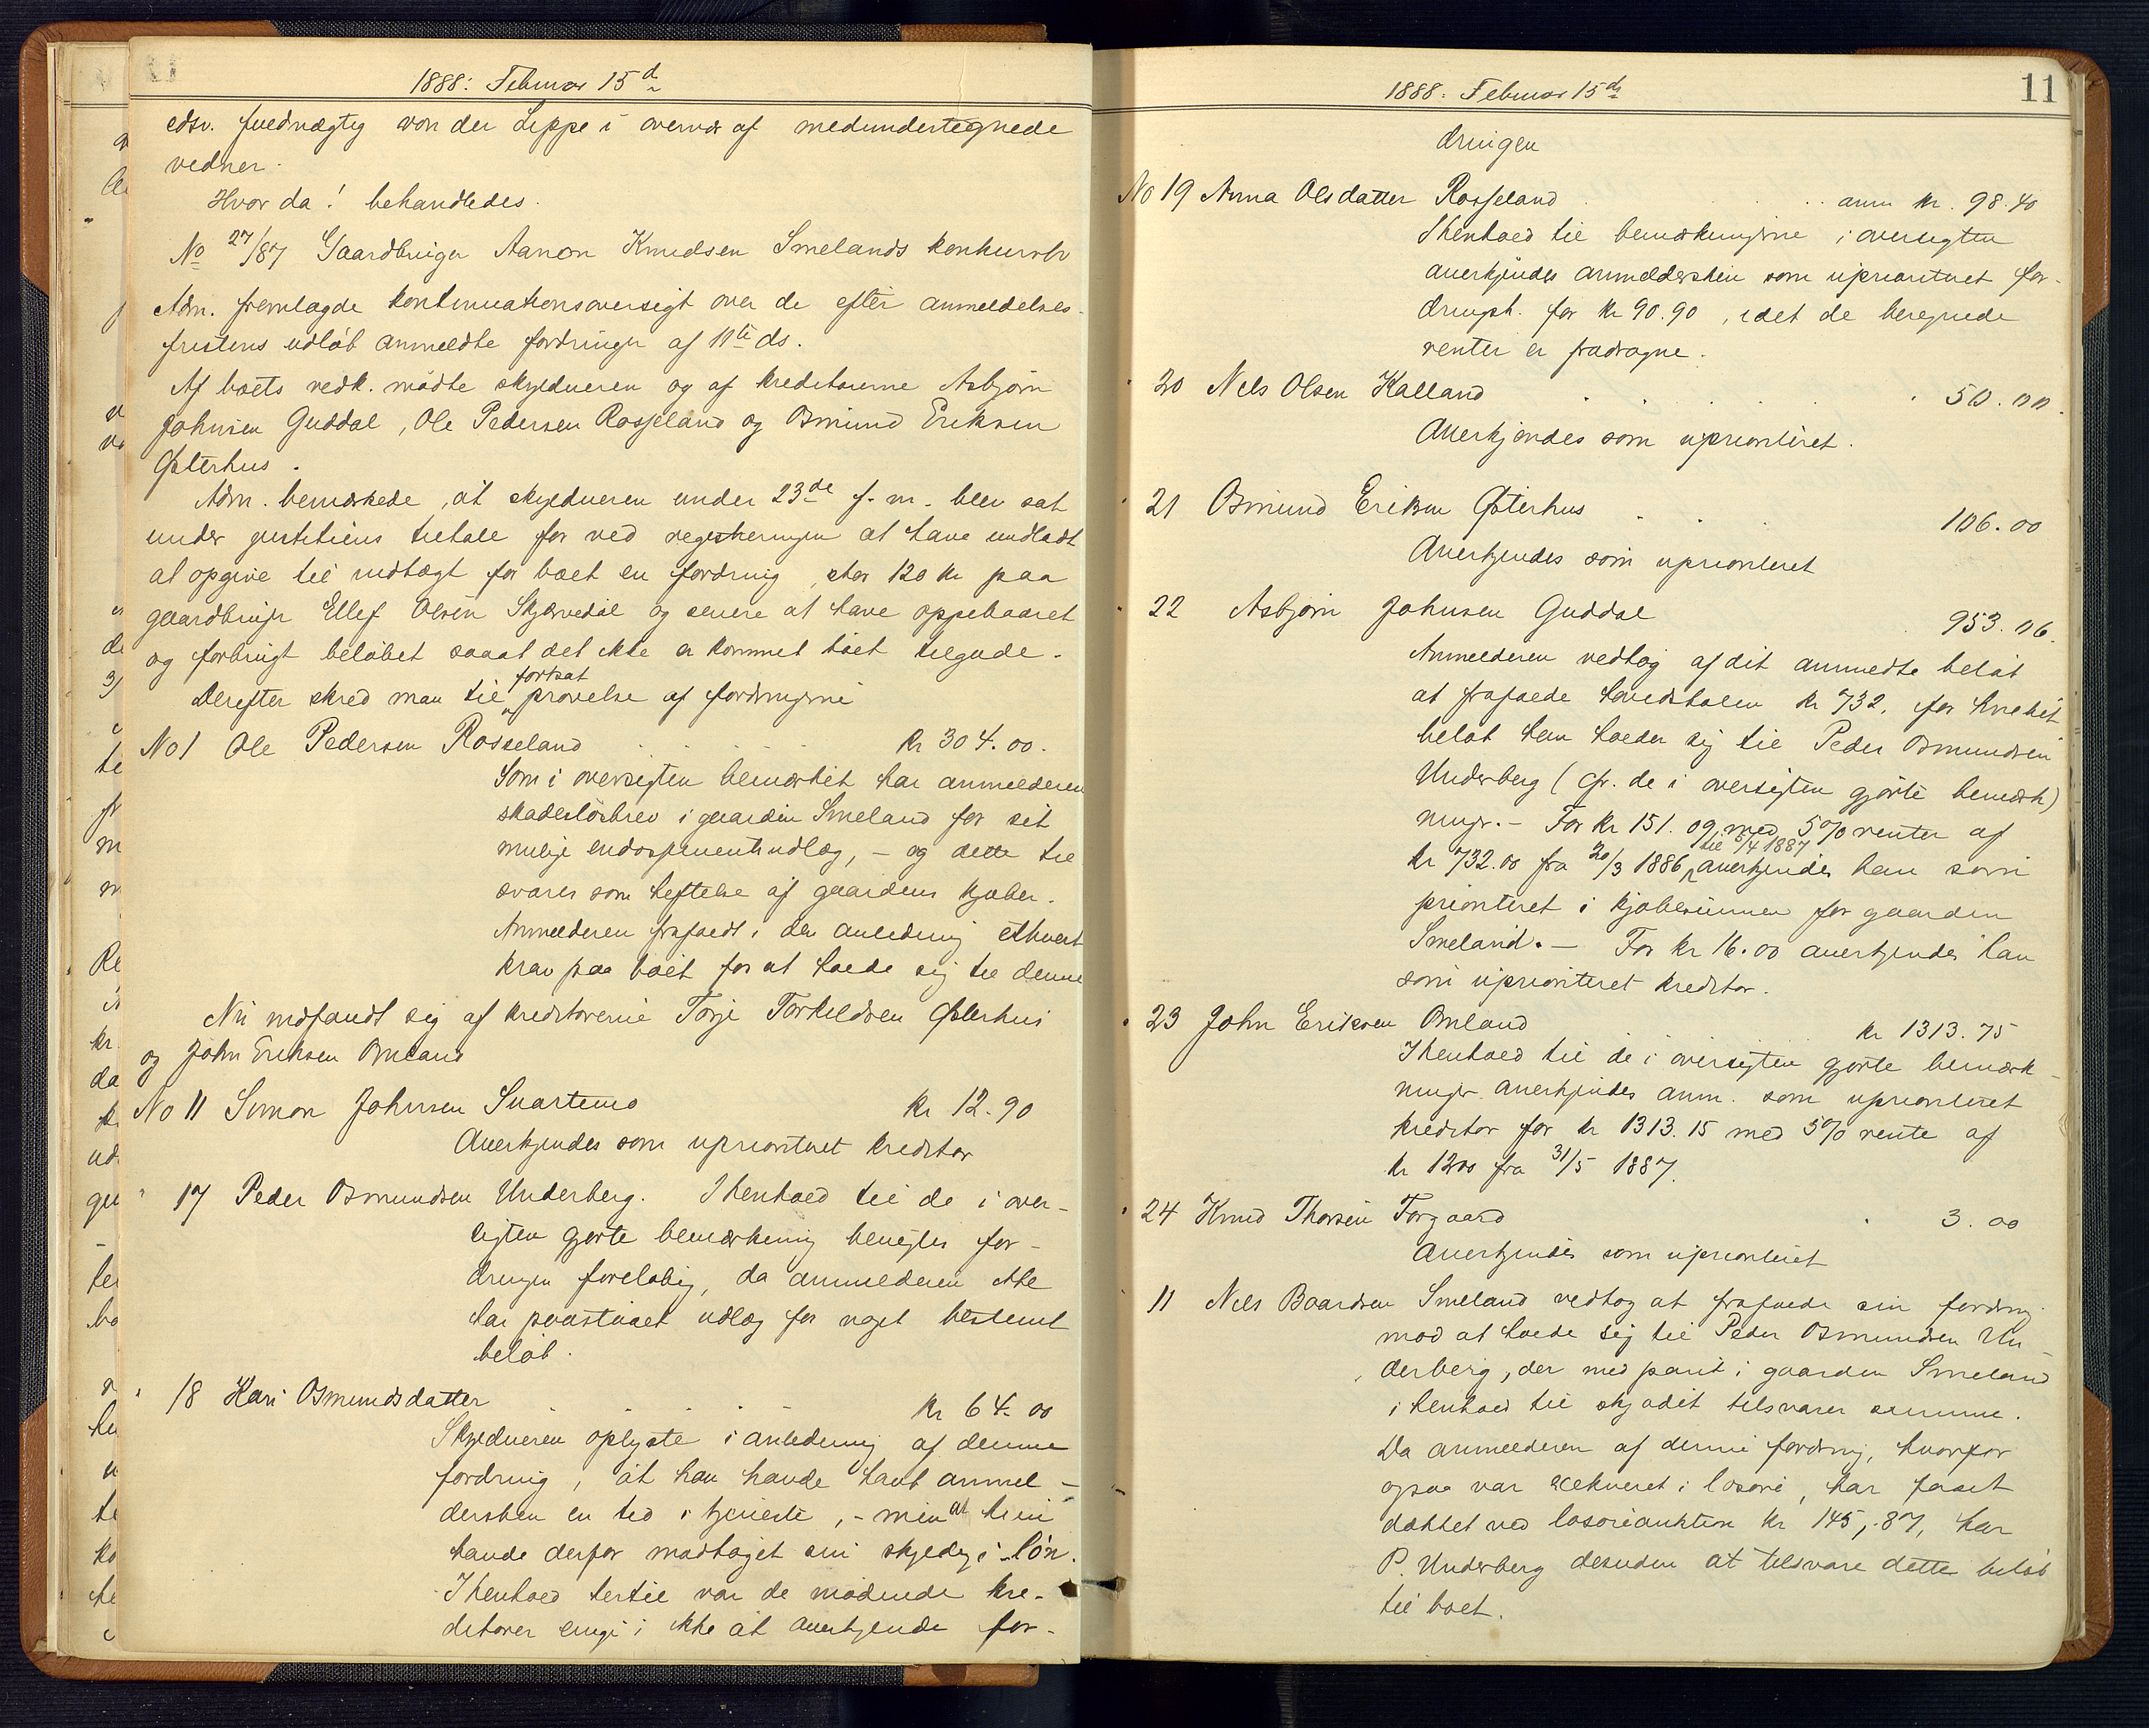 1888: Februar 15 d
edsv. fuldmægtig von der Lippe i overvær af medundertegnede
vidner.
Hvor da! behandledes.
No 27/87 Gaardbruger Aanon Knudsen Smelands konkursbo
Adm. fremlagde kontinuationsoversigt over de efter anmeldelses-
fristens udløb anmeldte fordringer af 11te ds.
Af boets vedk. mødte skyldneren og af kreditorerne Asbjørn
Johnsen Guddal, Ole Pedersen Rosseland og Osmund Eriksen
Østerhus.
Adm. bemærkede, at skyldneren under 23de f. m. blev sat
under justitiens tiltale for ved registreringen at have undladt
at opgive til indtægt for boet en fordring, stor 120 kr paa
gaardbruger Ellef Olsen Skjærvedal og senere at have oppebaaret
og forbrugt beløbet saaat det ikke er kommet boet tilgode.
Derefter skred man til fortsat prøvelse af fordringerne
No 1 Ole Pedersen Rosseland kr 304.00.
Som i oversigten bemærket har anmelderen
skadesløsbrev i gaarden Smeland for sit
mulige endossementsudlæg, - og dette til
svares som heftelse af gaardens kjøber.
Anmelderen frafaldt i den anledning ethvert
krav paa boet for at holde sig til denne
Nu indfandt sig af kreditorerne Torje Torkildsen Østerhus
og John Eriksen Omland
No 11 Simon Johnsen Svartemo kr 12.90
Anerkjendes som uprioriteret kreditor
" 17 Peder Osmundsen Underberg. I henhold til de i over-
sigten gjorte bemærkning benegtes for-
dringen foreløbig, da anmelderen ikke
har paastaaet udlæg for noget bestemt
beløb.
" 18 Kari Osmundsdatter kr 64.00
Skyldneren oplyste i anledning af denne
fordring, at han havde havt anmel-
dersken en tid i tjeneste, - men at hun
havde derfor modtaget sin skyldig løn.
I henhold hertil var de mødende kre-
ditorer enige i ikke at anerkjende for-
1888: Februar 15 ds
11
dringen
No 19 Anna Olsdatter Rosseland anm kr. 98.40
I henhold til bemærkningerne i oversigten
anerkjendes anmeldersken som uprioriteret for-
dringsh. for kr 90.90, idet de beregnede
renter er fradragne.
" 20 Nels Olsen Kalland 50.00.
Anerkjendes som uprioriteret.
" 21 Osmund Eriksen Østerhus 106.00
Anerkjendes som uprioriteret
" 22 Asbjørn Johnsen Guddal 953.06.
Anmelderen vedtog af det anmeldte beløb
at frafalde hovedstolen kr 732, for hvilket
beløb han holder sig til Peder Osmundsen
Underberg (cfr. de i oversigten gjorte bemærk)
ninger. - For kr 151.09 med 5% renter af
kr 732.00 fra 20/3 1886 til 5/4 1887 anerkjendes han som
prioriteret i kjøbesummen for gaarden
Smeland. - For kr 16.00 anerkjendes han
som uprioriteret kreditor.
" 23 John Eriksen Omland kr 1313.75
I henhold til de i oversigten gjorte bemærk-
ninger anerkjendes anm. som uprioriteret
kreditor for kr 1313.15 med 5% rente af
kr 1200 fra 31/5 1887.
" 24 Knud Thorsen Torgaard 3.00
Anerkjendes som uprioriteret
11 Nils Baardsen Smeland vedtog at frafalde sin fordring
mod at holde sig til Peder Osmundsen Un-
derberg, der med pant i gaarden Smeland
i henhold til skjødet tilsvarer samme.
Da anmelderen af denne fordring, hvorfor
ogsaa var exekveret i løsøre, har faaet
dækket ved løsøreauktion kr 145,.87, har
P. Underberg desuden at tilsvare dette beløb
til boet.